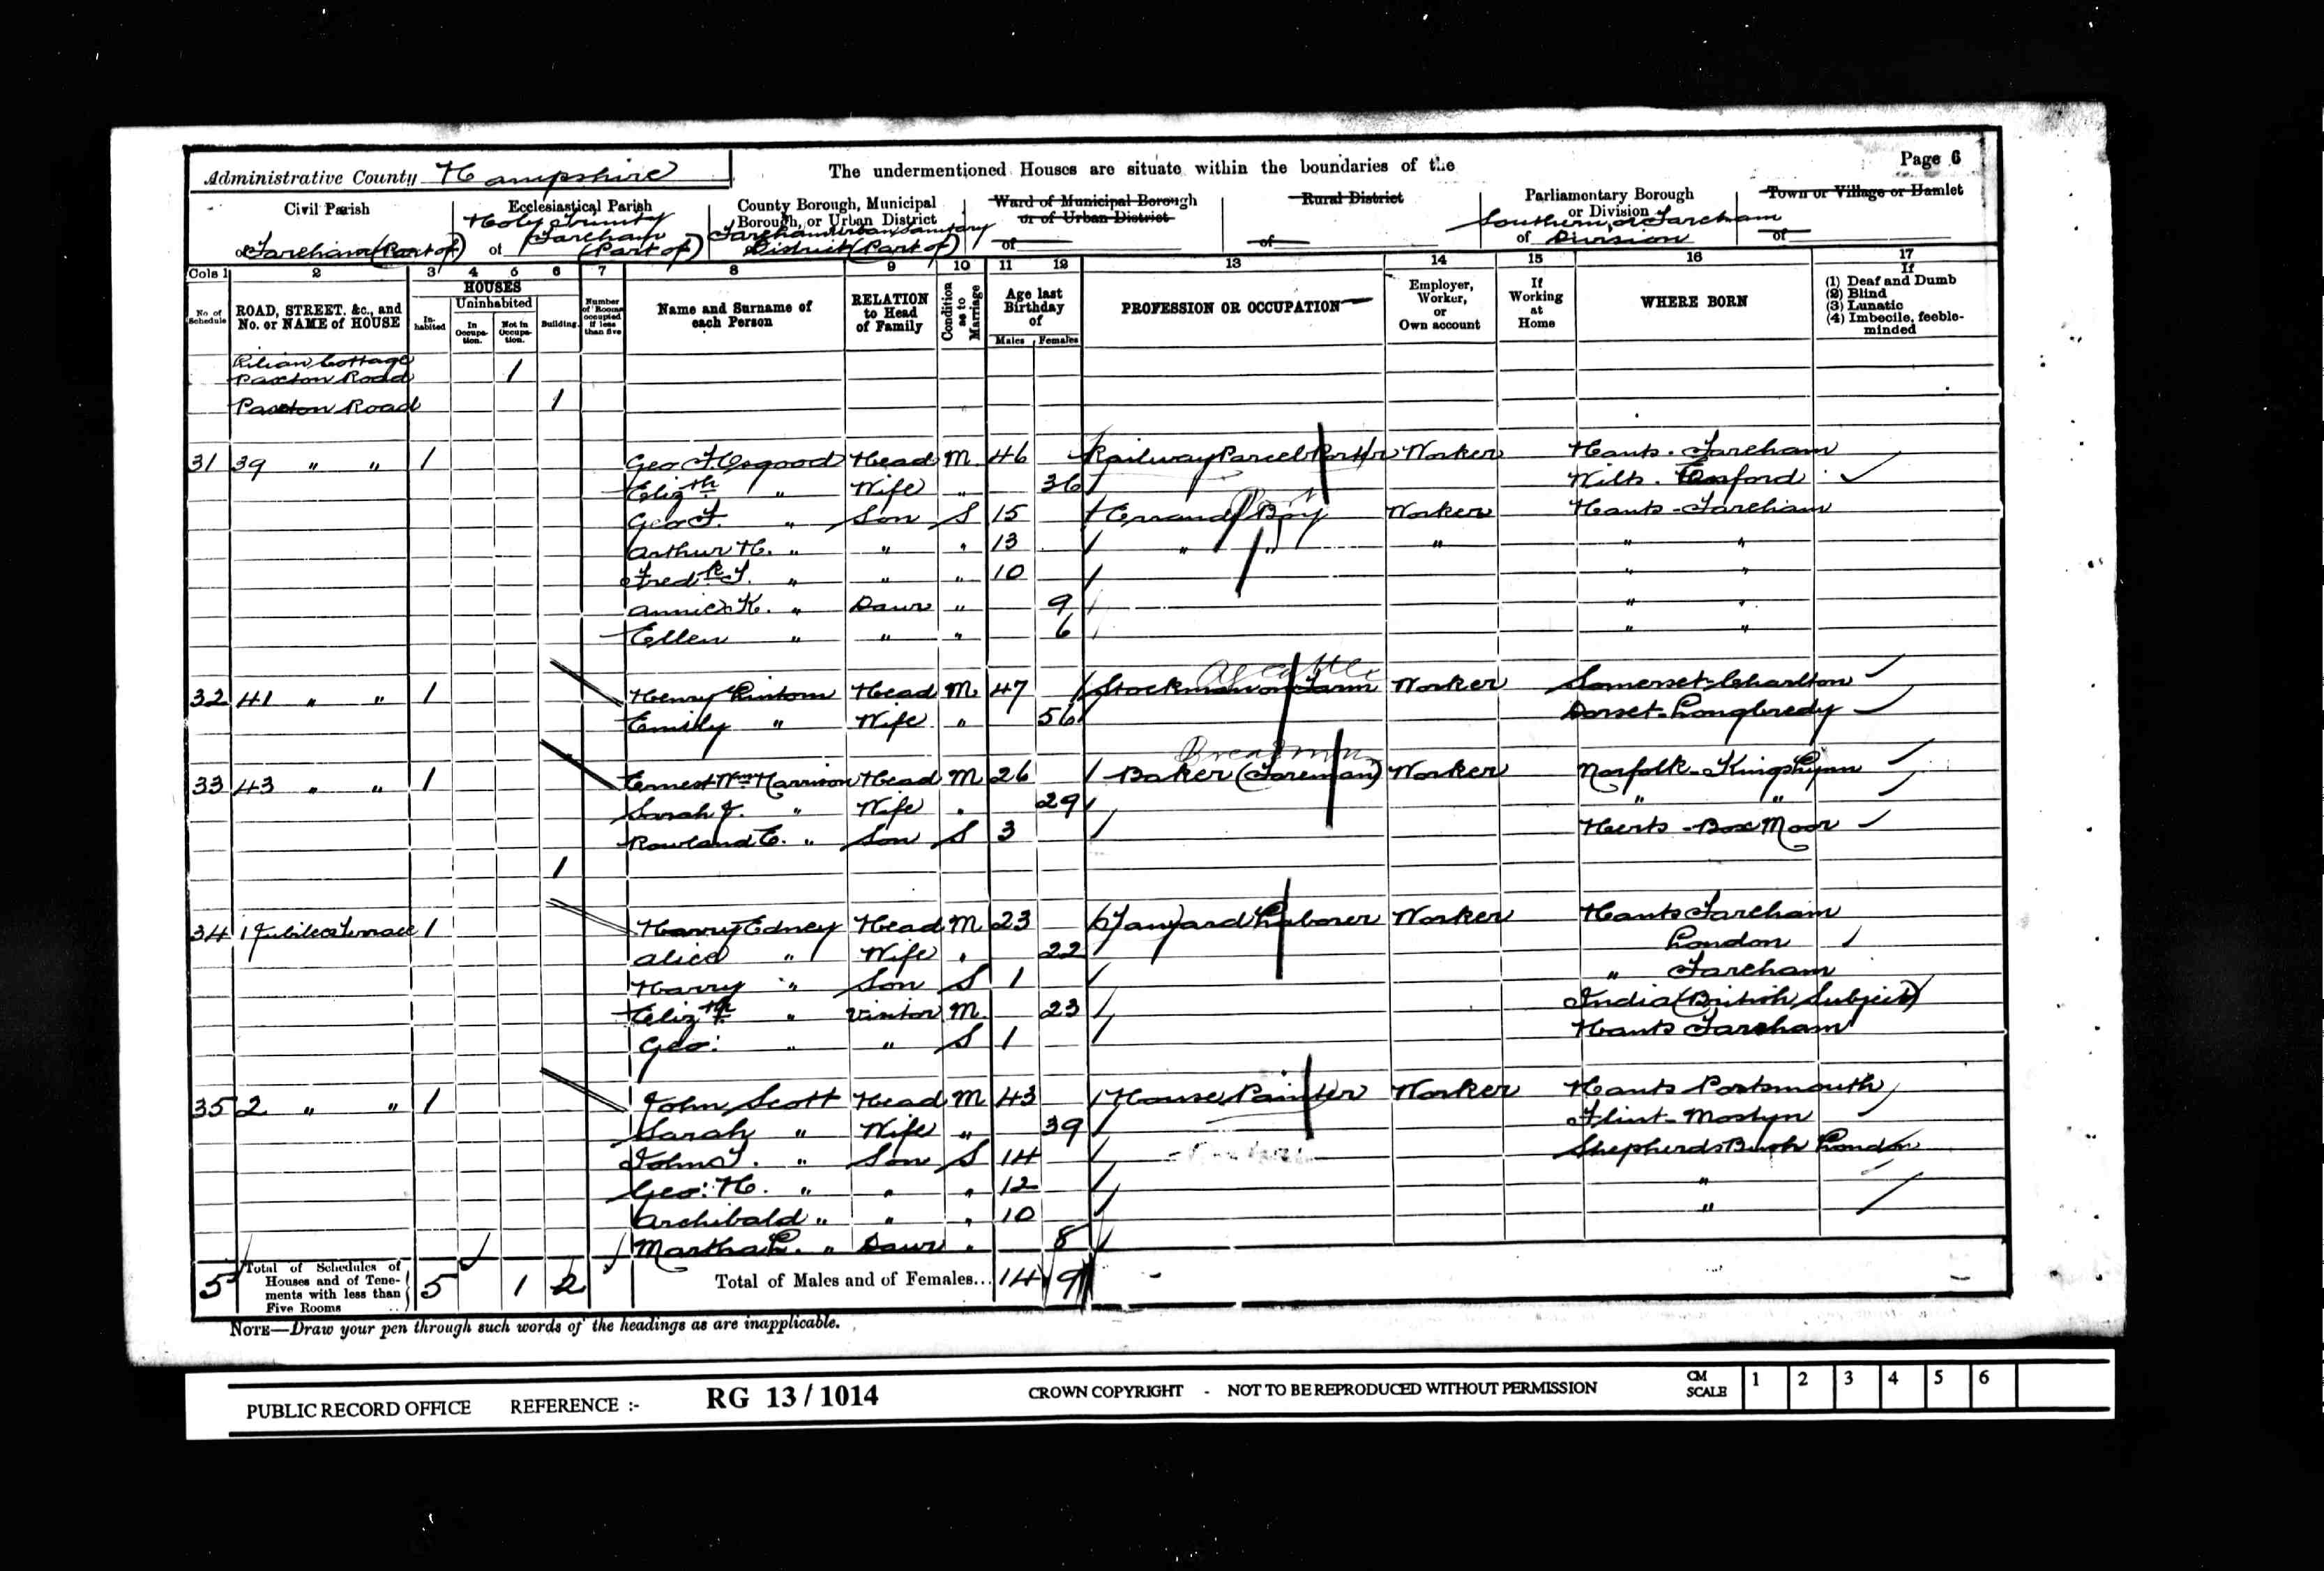 Page 6
Administrative County Hampshire The undermentioned Houses are situate within the boundaries of the
Civil Parish Ecclesiastical Parish County Borough, Municipal Borough, or Urban District Ward of Municipal Borough or of Urban District Rural District Parliamentary Borough or Division Town or Village or Hamlet
of Fareham (Part of) of Holy Trinity Fareham (Part of) Fareham Urban Sanitary District (Part of) of of of Southern, or Fareham Division of
Cols 1 2 3 4 5 6 7 8 9 10 11 12 13 14 15 16 17
No. of Schedule ROAD, STREET, &c., and No. or NAME of HOUSE HOUSES Inhabited Uninhabited In Occupation. Not in Occupation. Building. Number of Rooms occupied if less than five Name and Surname of each Person RELATION to Head of Family Condition as to Marriage Age last Birthday of Males Females PROFESSION OR OCCUPATION Employer, Worker, or Own account If Working at Home WHERE BORN If (1) Deaf and Dumb (2) Blind (3) Lunatic (4) Imbecile, feeble-minded
Lilian Cottage
Paxton Road 1
Paxton Road 1
31 39 " " 1 Geo F. Osgood Head M 46 Railway Parcel Porter Worker Hants. Fareham
Elizth " Wife " 36 Wilts.
Geo F. " Son S 15 Errand Boy Worker Hants - Fareham
Arthur H. " " " 13 " " " " "
Fredk J. " " " 10 " "
Annie K. " Daur " 9 " "
Ellen " " " 6 " "
32 41 " " 1 Henry Head M 47 Stockman on Farm Worker Somerset. Charlton
Emily " Wife " 56 Dorset. Longbredy
33 43 " " 1 Ernest Wm Harrison Head M 26 Baker (Foreman) Worker Norfolk - Kings Lynn
Sarah J. " Wife " 29 " "
Rowland E. " Son S 3 Herts - Box Moor
1
34 1 Jubilee Terrace 1 Harry Edney Head M 23 Tanyard Laborer Worker Hants Fareham
Alice " Wife " 22 London
Harry " Son S 1 " Fareham
Elizth " Visitor M 23 India (British Subject)
Geo: " " S 1 Hants Fareham
35 2 " " 1 John Scott Head M 43 House Painter Worker Hants Portsmouth
Sarah " Wife " 39 Flint - Mostyn
John J. " Son S 14 Shepherds Bush London
Geo: H. " " " 12 "
Archibald " " " 10 "
Martha L. " Daur " 8
5 Total of Schedules of Houses and of Tenements with less than Five Rooms 5 1 2 Total of Males and of Females... 14 9
NOTE—Draw your pen through such words of the headings as are inapplicable.
PUBLIC RECORD OFFICE REFERENCE :- RG 13 / 1014 CROWN COPYRIGHT - NOT TO BE REPRODUCED WITHOUT PERMISSION CM SCALE 1 2 3 4 5 6